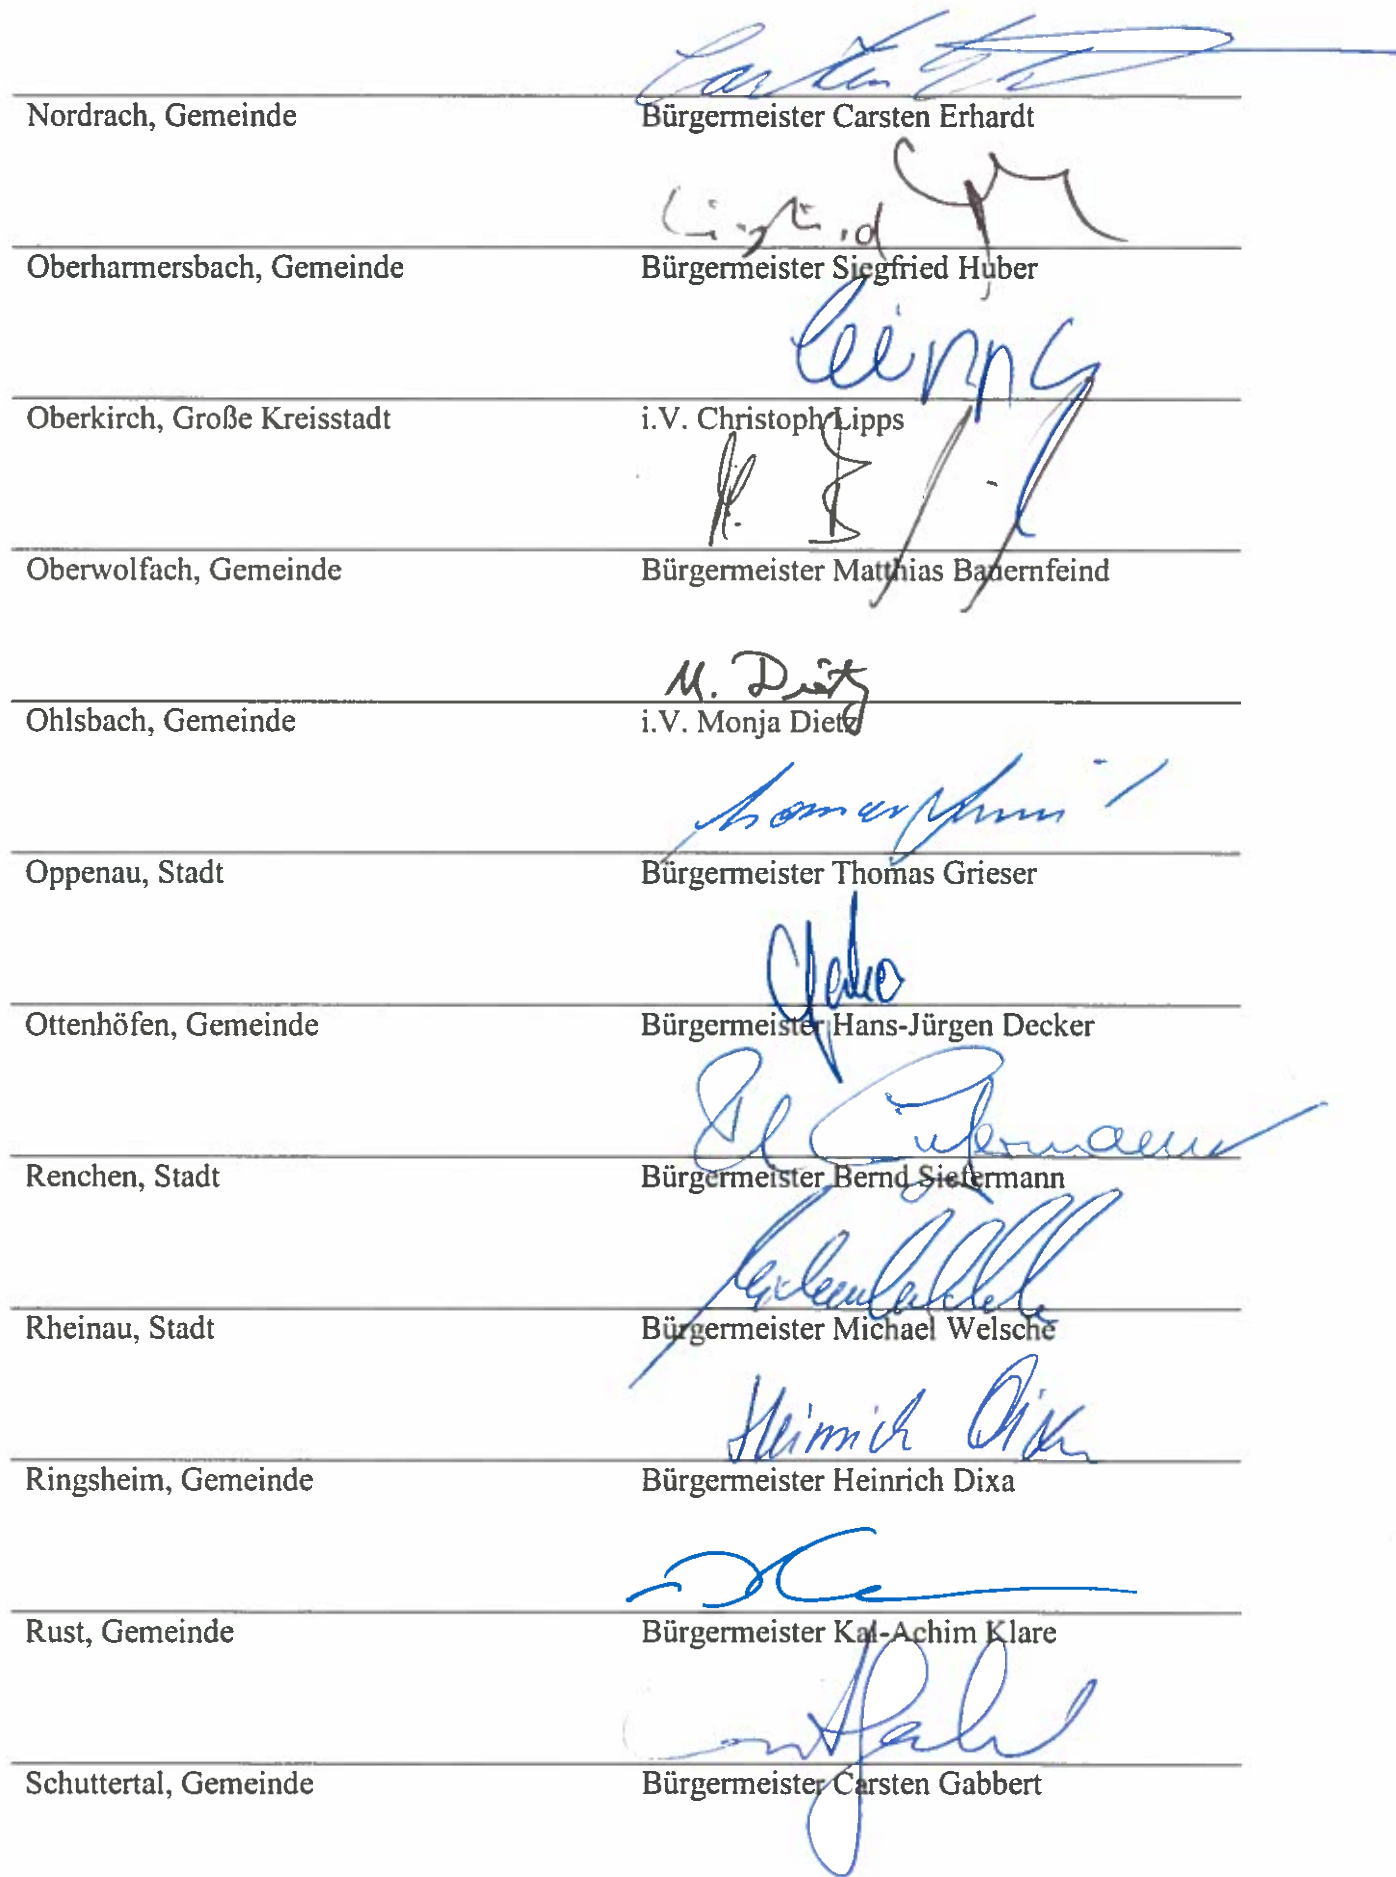 Carsten
Nordrach, Gemeinde Bürgermeister Carsten Erhardt
Siegfried
Oberharmersbach, Gemeinde Bürgermeister Siegfried Huber
Oberkirch, Große Kreisstadt i.V. Christoph Lipps
Oberwolfach, Gemeinde Bürgermeister Matthias Bauernfeind
M. Dietz
Ohlsbach, Gemeinde i.V. Monja Dietz
Oppenau, Stadt Bürgermeister Thomas Grieser
Ottenhöfen, Gemeinde Bürgermeister Hans-Jürgen Decker
Renchen, Stadt Bürgermeister Bernd Siefermann
Rheinau, Stadt Bürgermeister Michael Welsche
Heinrich Dixa
Ringsheim, Gemeinde Bürgermeister Heinrich Dixa
Rust, Gemeinde Bürgermeister Kai-Achim Klare
Schuttertal, Gemeinde Bürgermeister Carsten Gabbert